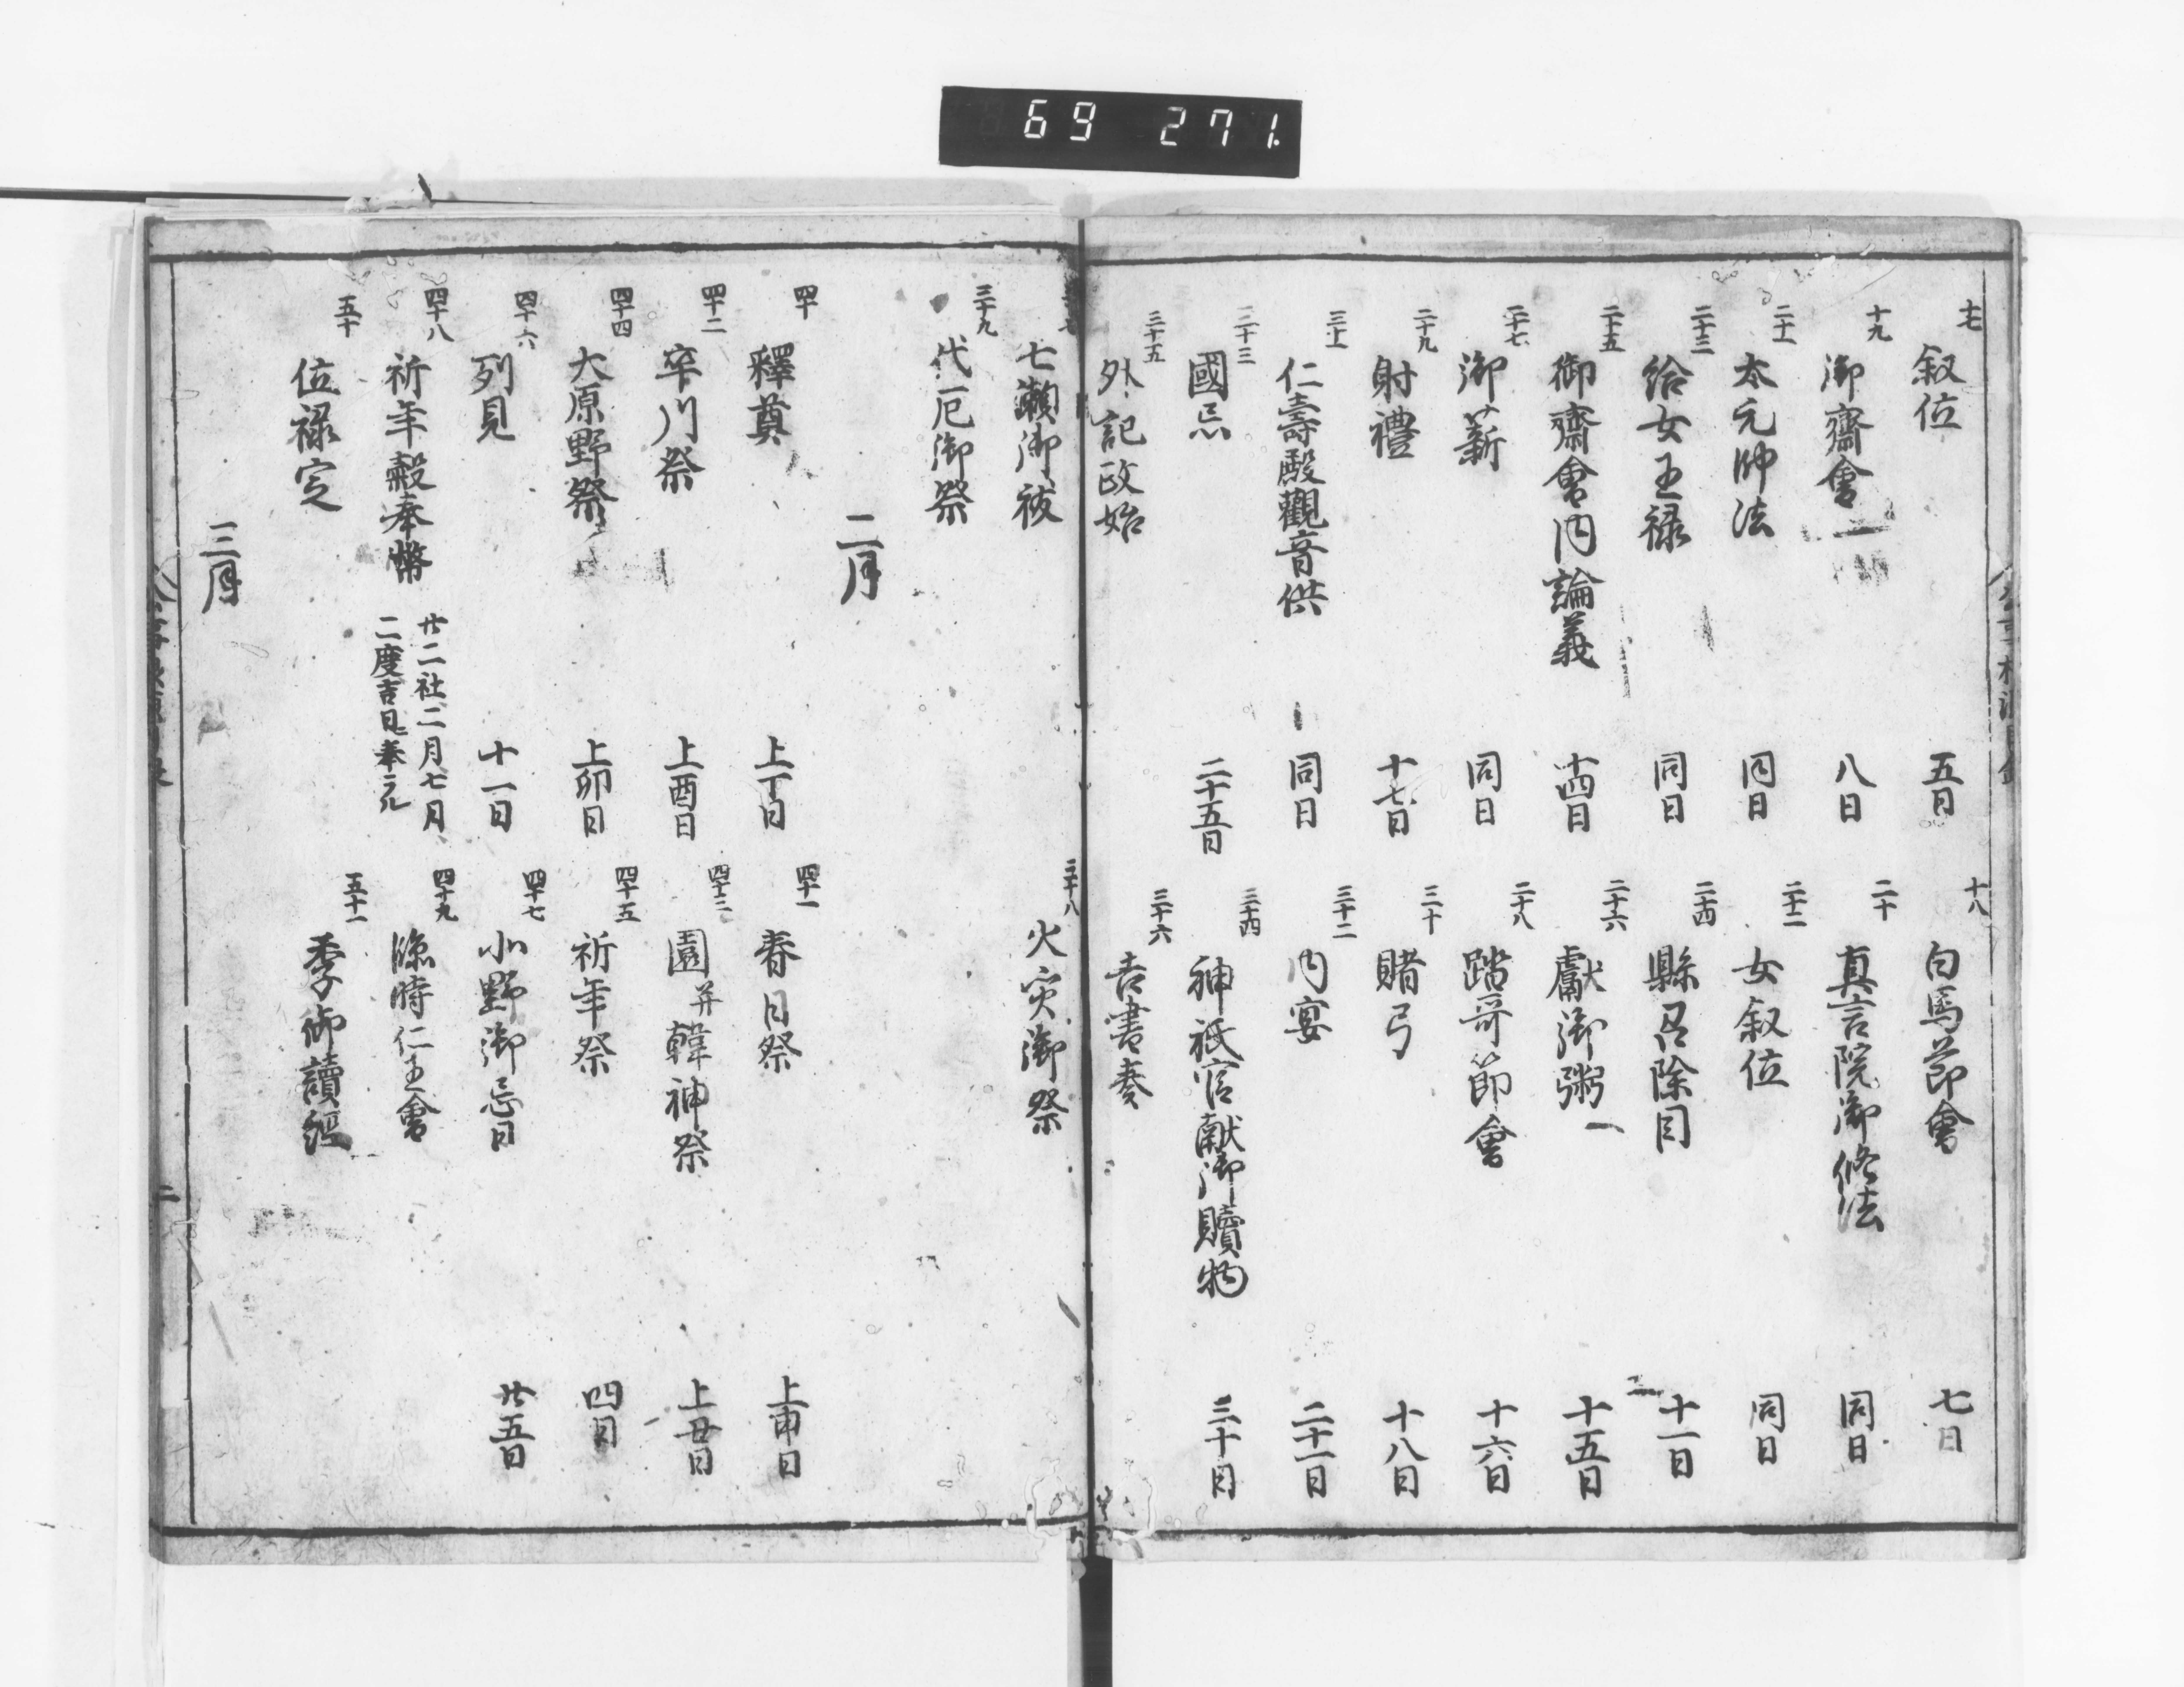 69 271
十七 叙位 五日
十八 白馬節會 七日
十九 御齋會 八日
二十 真言院御修法 同日
二十一 太元帥法 同日
二十二 女叙位 同日
二十三 給女王禄 同日
二十四 縣召除目 十一日
二十五 御齋會内論義 十四日
二十六 獻御粥 十五日
二十七 御薪 同日
二十八 踏哥節會 十六日
二十九 射禮 十七日
三十 賭弓 十八日
三十一 仁壽殿觀音供 同日
三十二 内宴 二十一日
三十三 國忌 二十五日
三十四 神祇官献御贖物 三十日
三十五 外記政始
三十六 吉書奏
七瀬御祓
三十八 火災御祭
三十九 代厄御祭
二月
四十 釋奠 上丁日
四十一 春日祭 上申日
四十二 率川祭 上酉日
四十三 園并韓神祭 上丑日
四十四 大原野祭 上卯日
四十五 祈年祭 四日
四十六 列見 十一日
四十七 小野御忌日 廿五日
四十八 祈年穀奉幣 廿二社二月七月
二度吉日奉ル
四十九 臨時仁王會
五十 位禄定
五十一 季御讀經
三月
二